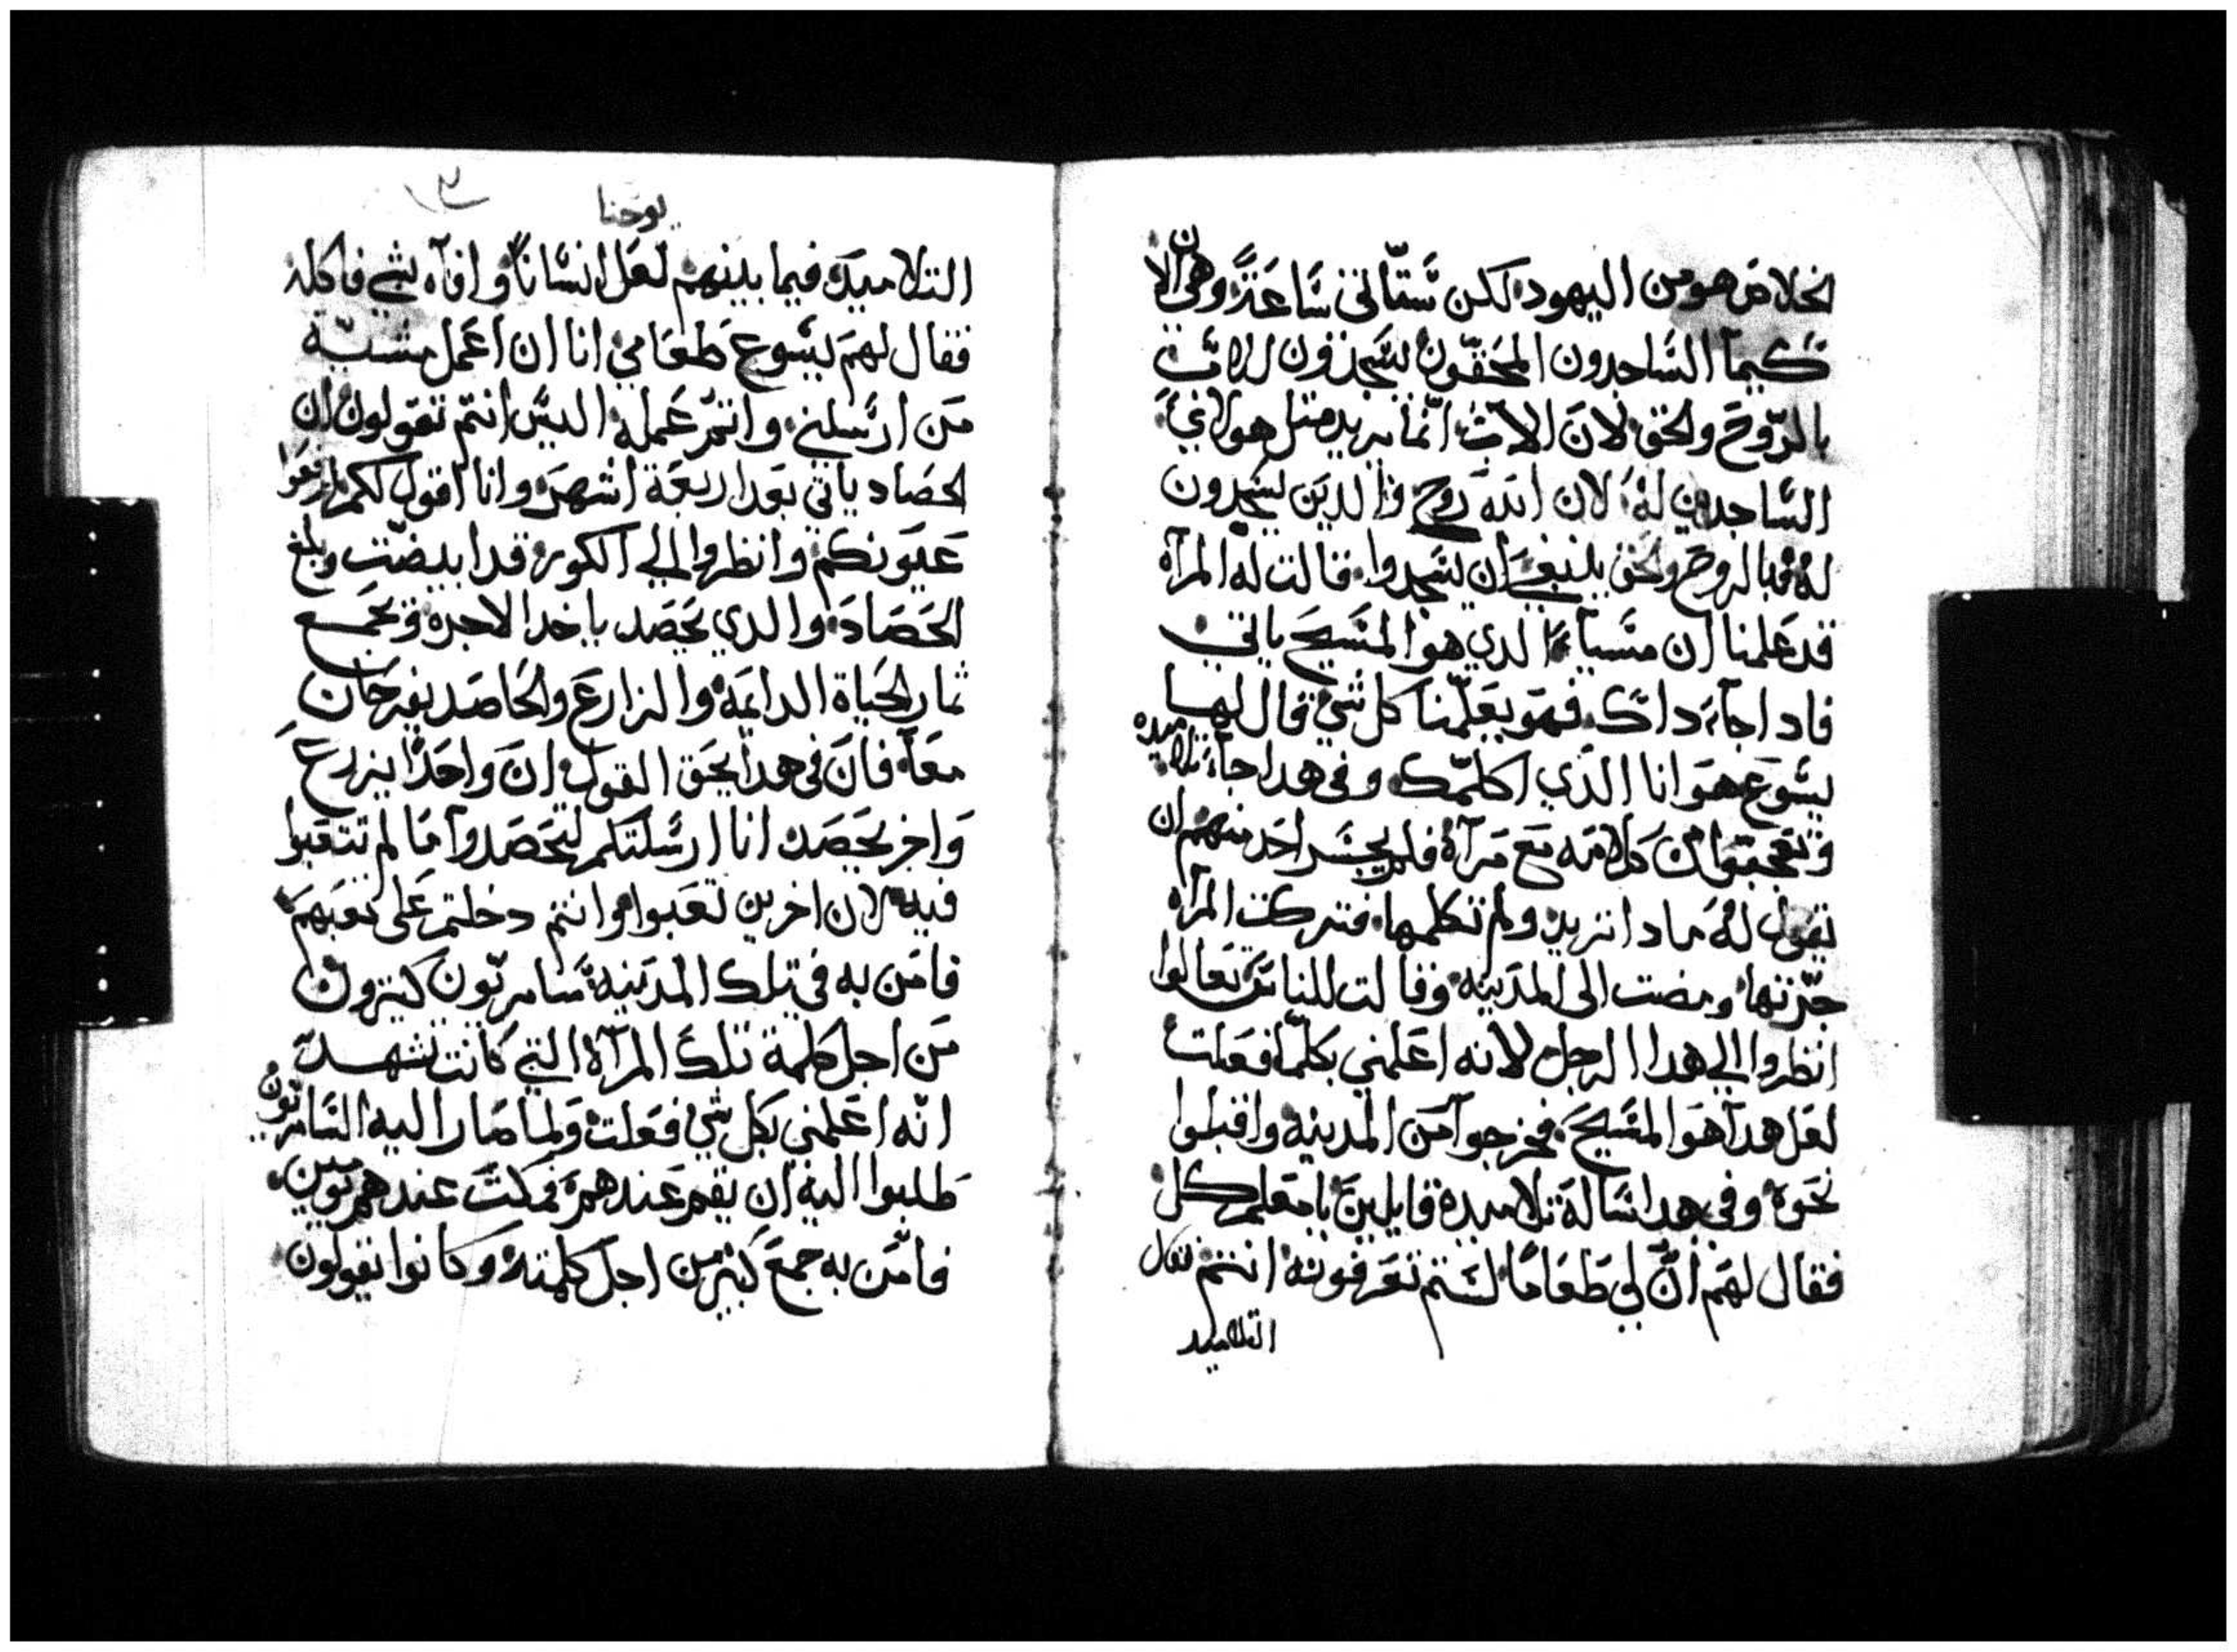 الخلاص هو من اليهود لكن ستاتي ساعة وهي الان
كيما الساجدون المحقون يسجدون للاب
بالروح والحق لان الاب انما يريد مثل هولاي
الساجدين له لان الله روح والدين يسجدون
له فبالروح والحق ينبغي ان يسجدوا قالت له المرآة
قد علمنا ان مسيا الدي هو المسيح ياتي
فادا جآء داك فهو يعلمنا كل شي قال لها
يسوع هو انا الدي اكلمك وفي هدا جآء تلاميده
وتعجبوا من كلامه مع مرآة فلم يجسر احد منهم ان
يقول له مادا تريد ولم تكلمها فتركت المرآة
جرتها ومضت الى المدينه وقالت للناس تعالوا
انظروا الي هدا الرجل لانه اعلمني بكلما فعلت
لعل هدا هو المسيح فخرجوا من المدينه واقبلوا
نحوه وفي هدا ساله تلاميده قايلين يا معلم كل
فقال لهم ان لي طعاما لستم تعرفونه انتم فقال
التلاميد
يوحنا
التلاميد فيما بينهم لعل انسانا وافاه بشي فاكله
فقال لهم يسوع طعامي انا ان اعمل مشية
من ارسلني واتمم عمله اليس انتم تقولون ان
الحصاد ياتي بعد اربعة اشهر وانا اقول لكم ارفعوا
عيونكم وانظروا الي الكور قد ابيضت وبلغ
الحصاد والدي يحصد ياخد الاجرة ويجمع
ثمار الحياة الدايمه والزارع والحاصد يفرحان
معا فان في هدا يحق القول ان واحدا يزرع
واخر يحصد انا ارسلتكم لتحصدوا ما لم تتعبوا
فيه لان اخرين تعبوا وانتم دخلتم على تعبهم
فامن به في تلك المدينه سامريون كثيرون
من اجل كلمة تلك المرآة التي كانت تشهد
انه اعلمني بكل شي فعلت ولما صار اليه السامريون
طلبوا اليه ان يقيم عندهم فمكث عندهم يومين
فامن به جمع كثير من اجل كلمته وكانوا يقولون